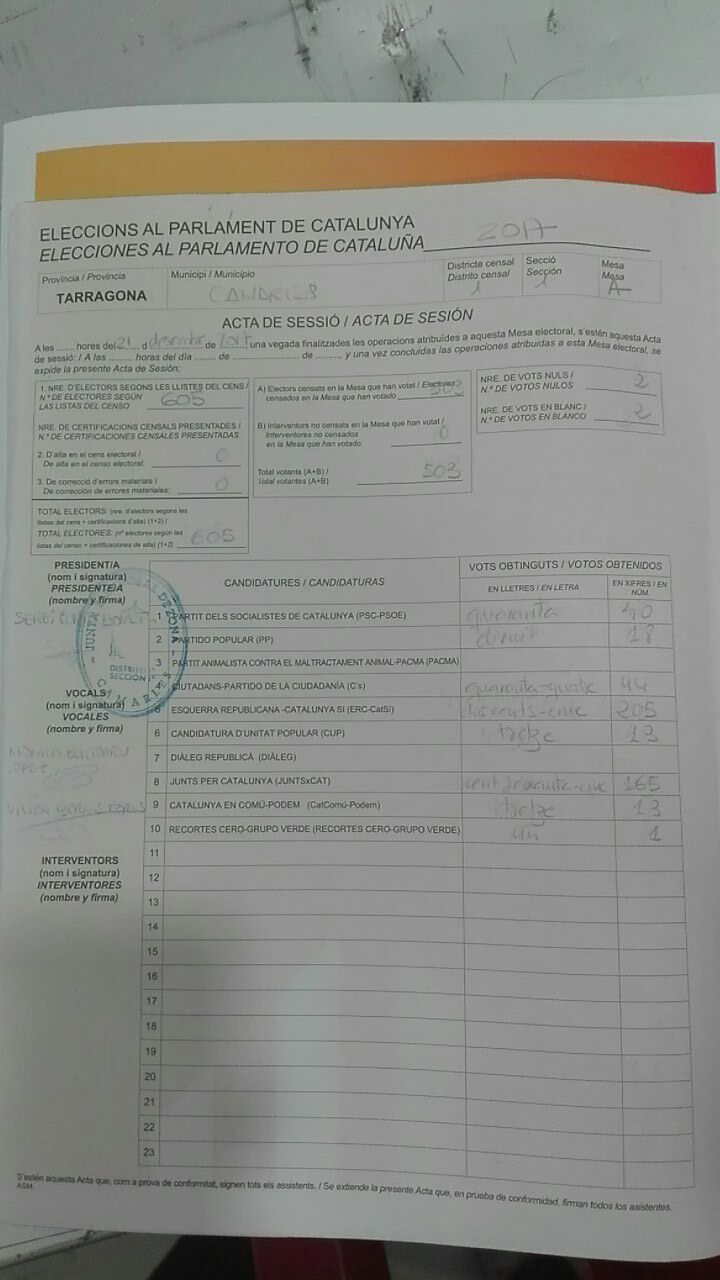 ELECCIONS AL PARLAMENT DE CATALUNYA
ELECCIONES AL PARLAMENTO DE CATALUÑA 2017
Província / Provincia
TARRAGONA
Municipi / Municipio
CAMARLES
Districte censal
Distrito censal
1
Secció
Sección
1
Mesa
Mesa
A
ACTA DE SESSIÓ / ACTA DE SESIÓN
A les ....... hores del 21 d desembre de 2017, una vegada finalitzades les operacions atribuïdes a aquesta Mesa electoral, s'estén aquesta Acta
de sessió: / A las ......... horas del día ....... de ........................ de ........, y una vez concluidas las operaciones atribuidas a esta Mesa electoral, se
expide la presente Acta de Sesión:
1. NRE. D'ELECTORS SEGONS LES LLISTES DEL CENS /
N.º DE ELECTORES SEGÚN
LAS LISTAS DEL CENSO 605
NRE. DE CERTIFICACIONS CENSALS PRESENTADES /
N.º DE CERTIFICACIONES CENSALES PRESENTADAS
2. D'alta en el cens electoral /
De alta en el censo electoral: 0
3. De correcció d'errors materials /
De corrección de errores materiales: 0
TOTAL ELECTORS: (nre. d'electors segons les
llistes del cens + certificacions d'alta) (1+2) /
TOTAL ELECTORES: (nº electores según las
listas del censo + certificaciones de alta) (1+2) 605
A) Electors censats en la Mesa que han votat / Electores
censados en la Mesa que han votado
B) Interventors no censats en la Mesa que han votat /
Interventores no censados
en la Mesa que han votado 0
Total votants (A+B) /
Total votantes (A+B) 503
NRE. DE VOTS NULS /
N.º DE VOTOS NULOS 2
NRE. DE VOTS EN BLANC /
N.º DE VOTOS EN BLANCO 2
PRESIDENT/A
(nom i signatura)
PRESIDENTE/A
(nombre y firma)
VOCALS
(nom i signatura)
VOCALES
(nombre y firma)
INTERVENTORS
(nom i signatura)
INTERVENTORES
(nombre y firma)
JUNTA DE ZONA
DISTRITO
SECCIÓN
CAMARLES
CANDIDATURES / CANDIDATURAS
VOTS OBTINGUTS / VOTOS OBTENIDOS
EN LLETRES / EN LETRA
EN XIFRES / EN
NÚM.
1 PARTIT DELS SOCIALISTES DE CATALUNYA (PSC-PSOE) quaranta 40
2 PARTIDO POPULAR (PP) divuit 18
3 PARTIT ANIMALISTA CONTRA EL MALTRACTAMENT ANIMAL-PACMA (PACMA)
CIUTADANS-PARTIDO DE LA CIUDADANÍA (C's) quaranta-quatre 44
5 ESQUERRA REPUBLICANA -CATALUNYA SI (ERC-CatSí) dos-cents-cinc 205
6 CANDIDATURA D'UNITAT POPULAR (CUP) tretze 13
7 DIÀLEG REPUBLICÀ (DIÀLEG)
8 JUNTS PER CATALUNYA (JUNTSxCAT) cent seixanta-cinc 165
9 CATALUNYA EN COMÚ-PODEM (CatComú-Podem) tretze 13
10 RECORTES CERO-GRUPO VERDE (RECORTES CERO-GRUPO VERDE) un 1
11
12
13
14
15
16
17
18
19
20
21
22
23
S'estén aquesta Acta que, com a prova de conformitat, signen tots els assistents. / Se extiende la presente Acta que, en prueba de conformidad, firman todos los asistentes.
ASM